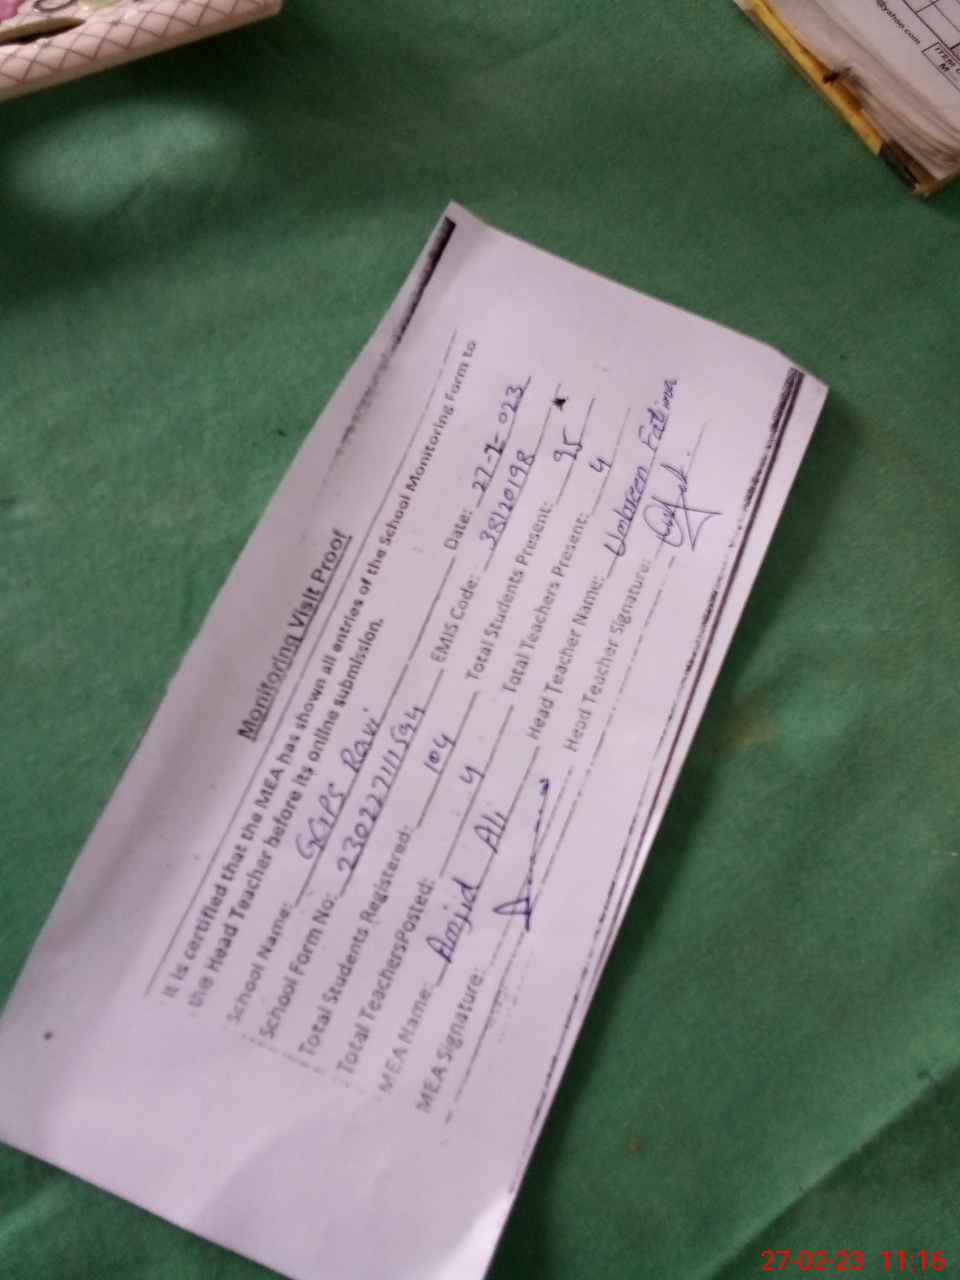 @yahoo.com
ITEM
M
Monitoring Visit Proof
It is certified that the MEA has shown all entries of the School Monitoring Form to
the Head Teacher before its online submission.
School Name: GGPS Ravi Date: 27-2-023
School Form No: EMIS Code: 38120198
Total Students Registered: 104 Total Students Present: 95
Total TeachersPosted: 4 Total Teachers Present: 4
MEA Name: Amjid Ali Head Teacher Name: Umbreen Fatima
MEA Signature: Head Teacher Signature:
27-02-23 11:16